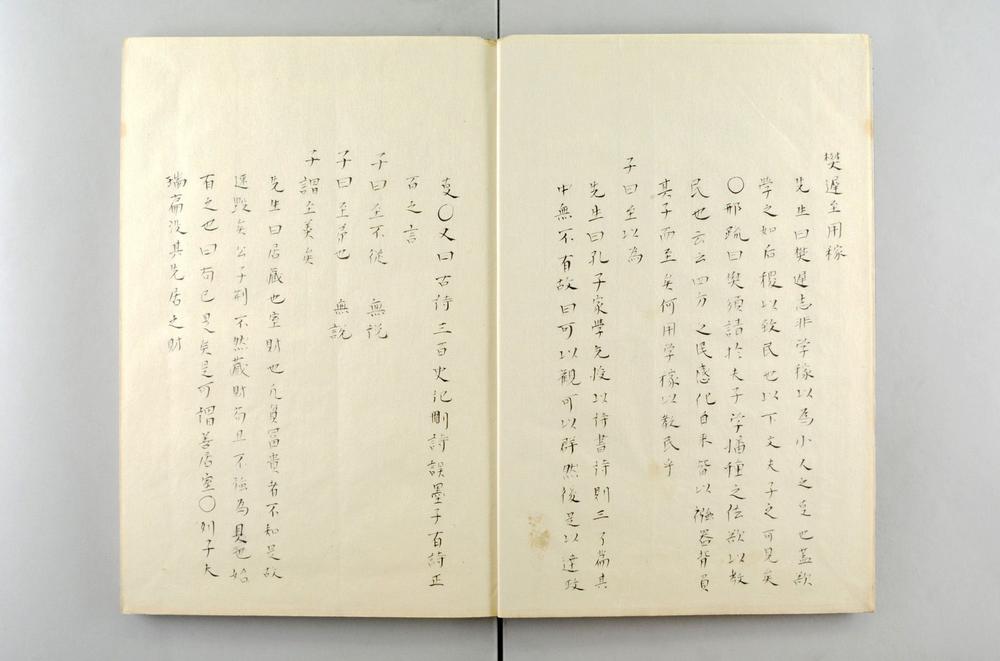 樊遅至用稼
先生曰樊遅志非学稼以為小人之生也蓋欲
学之如后稷以致民也以下文夫子之可見矣
○邢疏曰樊須請於夫子学播種之法欲以教
民也云云四方之民感化自来皆以襁器背負
其子而至矣何用学稼以教民乎
子曰至以為
先生曰孔子家学先授以詩書詩則三百篇其
中無不有故曰可以観可以群然後足以達政
〇又曰古詩三百史記刪詩誤墨子百詩正
百之言
子曰至不従　無説
子曰至弟也　無説
子謂至美矣
先生曰居蔵也室財也凡負冨貴者不知是故
速毀矣公子荊不然蔵財苟且不強為具也始
有之也曰苟已是矣是可謂善居室〇列子天
瑞篇没其先居之財